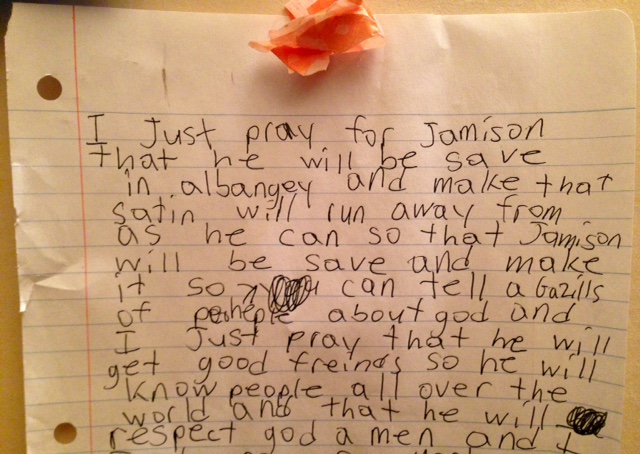 I Just pray for Jamison
that he will be save
in albangey and make that
satin will run away from
as he can so that Jamison
will be save and make
it so can tell a Gazills
of people about god and
I Just pray that he will
get good freinds so he will
know people all over the
world and that he will
respect god a men and I